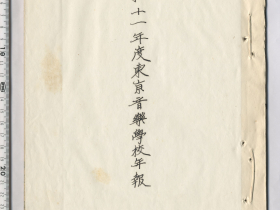 十一年度東京音樂學校年報